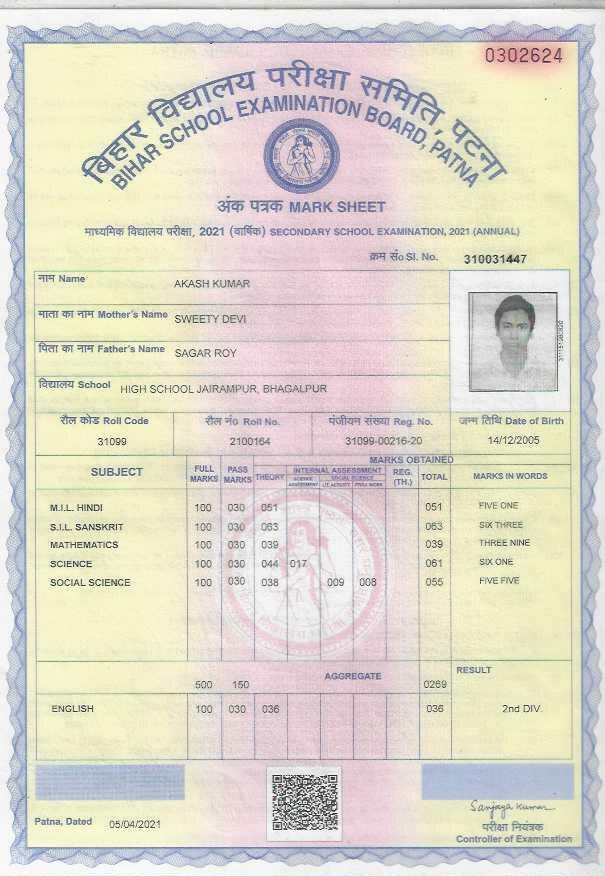 0302624
बिहार विद्यालय परीक्षा समिति, पटना
BIHAR SCHOOL EXAMINATION BOARD, PATNA
अंक पत्रक MARK SHEET
माध्यमिक विद्यालय परीक्षा, 2021 (वार्षिक) SECONDARY SCHOOL EXAMINATION, 2021 (ANNUAL)
क्रम सं० SI. No. 310031447
नाम Name AKASH KUMAR
माता का नाम Mother's Name SWEETY DEVI
पिता का नाम Father's Name SAGAR ROY
विद्यालय School HIGH SCHOOL JAIRAMPUR, BHAGALPUR
रौल कोड Roll Code रौल नं० Roll No. पंजीयन संख्या Reg. No. जन्म तिथि Date of Birth
31099 2100164 31099-00216-20 14/12/2005
MARKS OBTAINED
SUBJECT FULL MARKS PASS MARKS THEORY INTERNAL ASSESSMENT REG. (TH.) TOTAL MARKS IN WORDS
SCIENCE SOCIAL SCIENCE
M.I.L. HINDI 100 030 051 051 FIVE ONE
S.I.L. SANSKRIT 100 030 063 063 SIX THREE
MATHEMATICS 100 030 039 039 THREE NINE
SCIENCE 100 030 044 017 061 SIX ONE
SOCIAL SCIENCE 100 030 038 009 008 055 FIVE FIVE
AGGREGATE RESULT
500 150 0269
ENGLISH 100 030 036 036 2nd DIV.
Sanjaya Kumar
Patna, Dated 05/04/2021
परीक्षा नियंत्रक
Controller of Examination